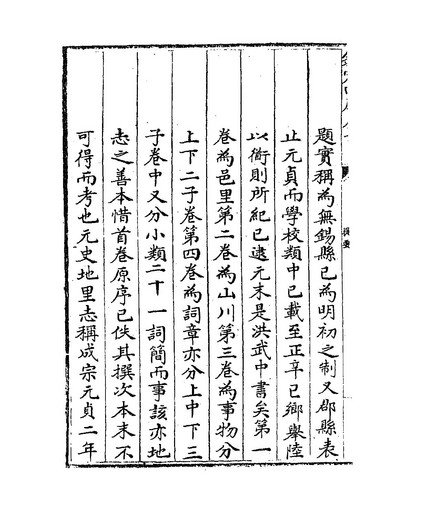 題實稱為無錫縣已為明初之制又郡縣表
止元貞而學校類中已載至正辛巳鄉舉陸
以衜則所紀已逮元末是洪武中書矣第一
卷為邑里第二卷為山川第三卷為事物分
上下二子卷第四卷為詞章亦分上中下三
子卷中又分小類二十一詞簡而事該亦地
志之善本惜首卷原序已佚其撰次本末不
可得而考也元史地里志稱成宗元貞二年